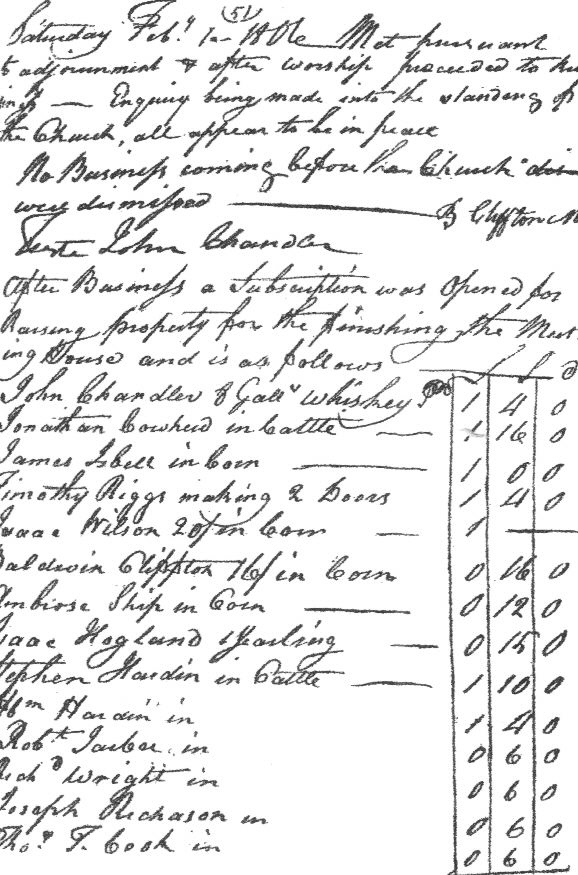 (51)
Saturday Feb.y 1.- 180 Met pursuant
to adjournment & after worship proceeded to bu
iness — Enquiry being made into the standing of
the Church, all appear to be in peace
No Business coming before the Church dis
were dismissed — B Cliffton
Teste John Chandler
After Business a Subscription was Opened for
Raising property for the finishing the Meet
ing House and is as follows
John Chandler 8 Gall.s Whiskey 1 4 0
Jonathan Cowherd in Cattle — 1 16 0
James Isbell in Corn — 1 0 0
Timothy Riggs making 2 Doors 1 4 0
Isaac Wilson 20/ in Corn — 1 —
Baldwin Cliffton 16/ in Corn 0 16 0
Ambrose Ship in Corn — 0 12 0
Isaac Hogland 1 Yearling — 0 15 0
Stephen Hardin in Cattle — 1 10 0
Wm Hardin in 1 4 0
Rob.t in 0 6 0
Rich.d Wright in 0 6 0
Joseph Richason in 0 6 0
Tho.s T. Cook in 0 6 0